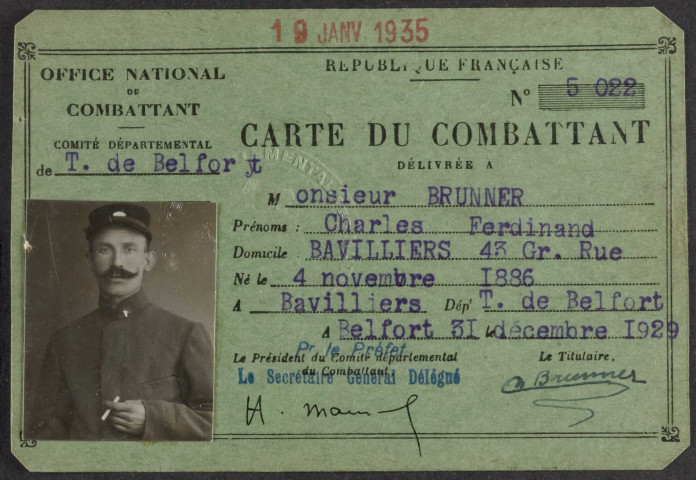 19 JANV 1935
OFFICE NATIONAL
DU
COMBATTANT
COMITÉ DÉPARTEMENTAL
de T. de Belfort
RÉPUBLIQUE FRANÇAISE
N° 5 022
CARTE DU COMBATTANT
DÉLIVRÉE A
Monsieur BRUNNER
Prénoms : Charles Ferdinand
Domicile BAVILLIERS 43 Gr. Rue
Né le 4 novembre I886
A Bavilliers Dépt T. de Belfort
A Belfort 3I le décembre I929
Pr le Préfet
Le Président du Comité départemental
du Combattant,
Le Secrétaire Général Délégué
Le Titulaire,
Brunner